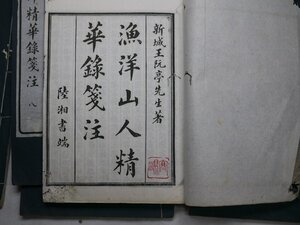 新城王阮亭先生著
漁洋山人精
華錄箋注
陸湘書端
精華錄箋注 八